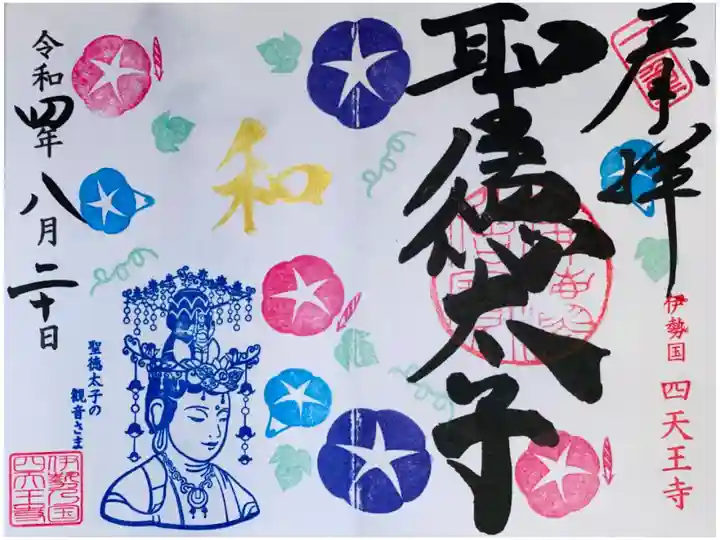 奉拝
聖徳太子
伊勢国 四天王寺
和
令和四年八月二十日
聖徳太子の
観音さま
伊勢乃国
四天王寺